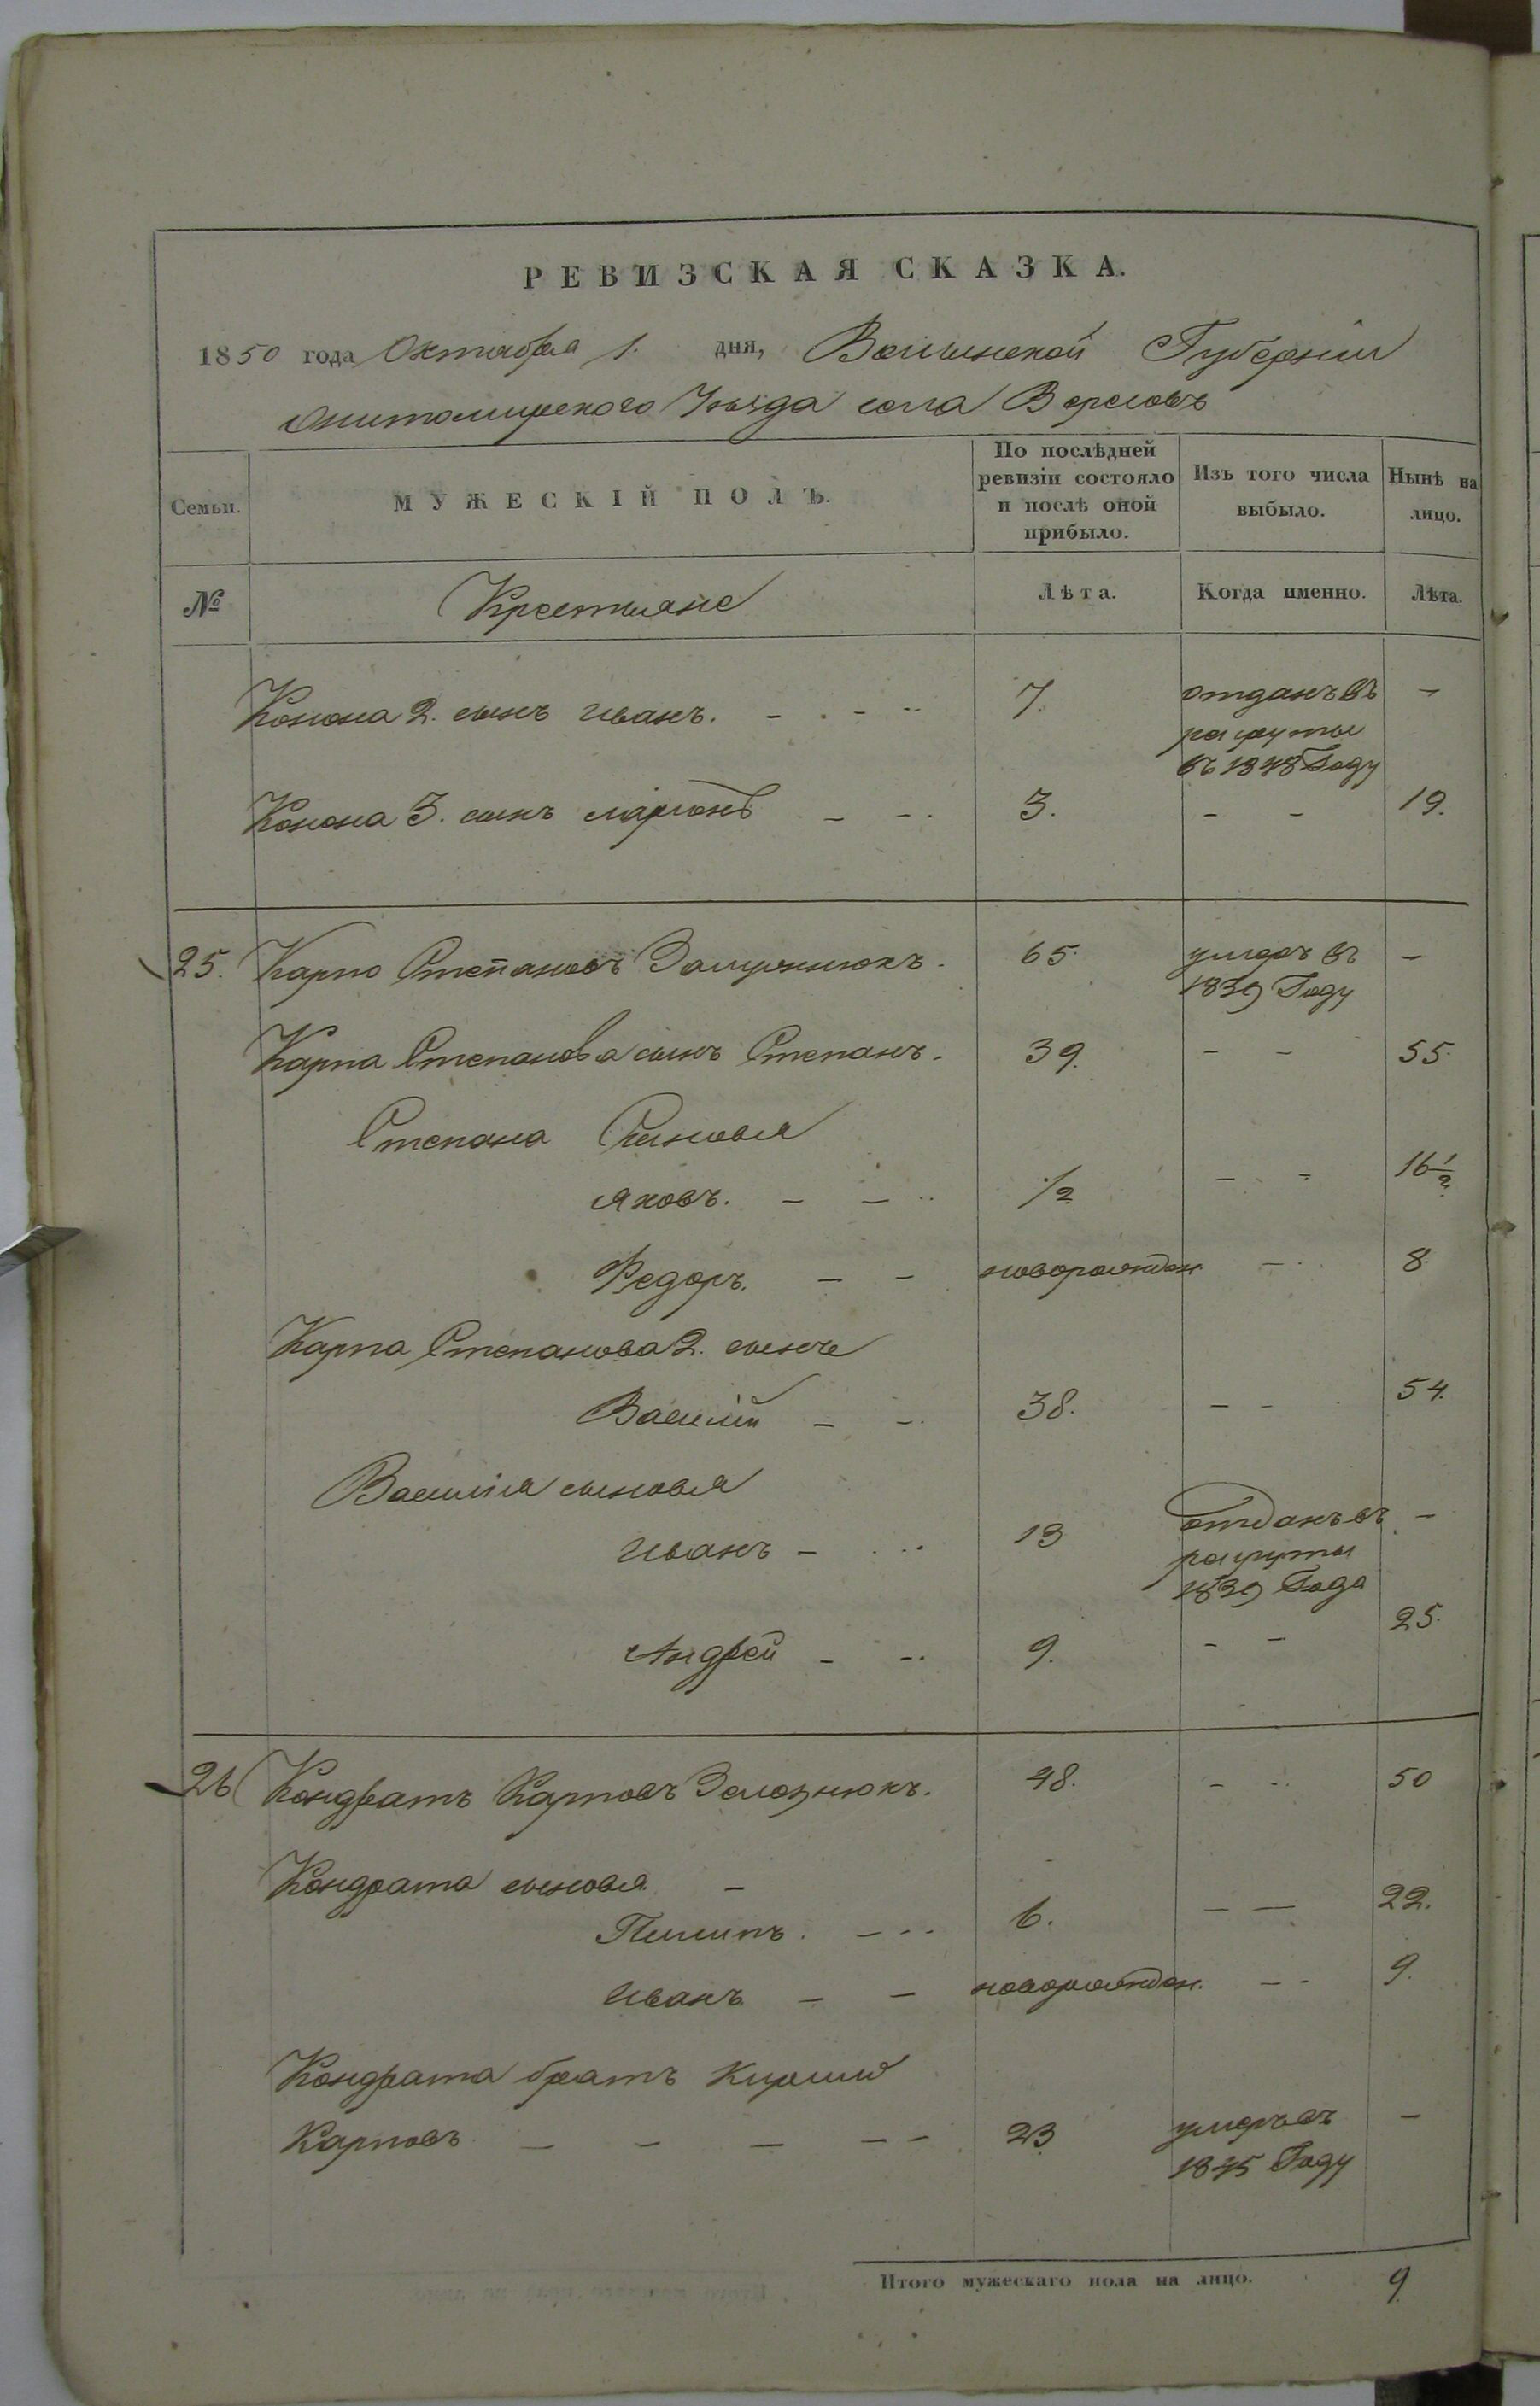 РЕВИЗСКАЯ СКАЗКА.
1850 года Октября 1. дня, Волынской Губернии
Житомирского Уѣзда села Вересовъ
Семьи.
МУЖЕСКІЙ ПОЛЪ.
По послѣдней ревизіи состояло и послѣ оной прибыло.
Изъ того числа выбыло.
Нынѣ на лицо.
№
Крестьяне
Лѣта.
Когда именно.
Лѣта.
Конона 2. сынъ Иванъ. - - - 7. отданъ въ -
рекруты
въ 1848 Году
Конона 3. сынъ - - 3. - - 19.
25. Карпо Степановъ 65. умеръ въ -
1839 Году
Карпа Степанова сынъ Степанъ. 39. - - 55.
Степана Сыновья
Яковъ. - - 1/2 - - 16 1/2
Федоръ. - - новорожден. - 8.
Карпа Степанова 2. сынъ
Василій - - 38. - - 54.
Василія сыновья
Иванъ - - 13 отданъ въ -
рекруты
1839 Года
Андрей - - 9. - - 25.
26 Кондратъ Карповъ 48. - - 50
Кондрата сыновья -
Пилипъ. - - 6. - - 22.
Иванъ - - новорожден. - - 9.
Кондрата братъ Кирило
Карповъ - - - - - 23 умеръ въ -
1845 Году
Итого мужескаго пола на лицо. 9.